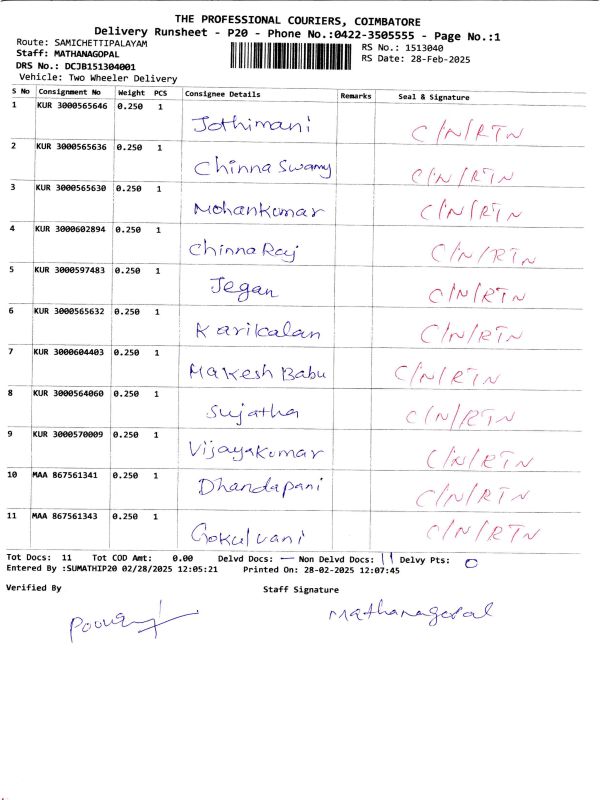 THE PROFESSIONAL COURIERS, COIMBATORE
Delivery Runsheet - P20 - Phone No.:0422-3505555 - Page No.:1
Route: SAMICHETTIPALAYAM
Staff: MATHANAGOPAL
DRS No.: DCJB151304001
Vehicle: Two Wheeler Delivery
RS No.: 1513040
RS Date: 28-Feb-2025
S No Consignment No Weight PCS Consignee Details Remarks Seal & Signature
1 KUR 3000565646 0.250 1 Jothimani C/N/RTN
2 KUR 3000565636 0.250 1 Chinna Swamy C/N/RTN
3 KUR 3000565630 0.250 1 Mohankumar C/N/RTN
4 KUR 3000602894 0.250 1 Chinna Raj C/N/RTN
5 KUR 3000597483 0.250 1 Jegan C/N/RTN
6 KUR 3000565632 0.250 1 Karikalan C/N/RTN
7 KUR 3000604403 0.250 1 Makesh Babu C/N/RTN
8 KUR 3000564060 0.250 1 Sujatha C/N/RTN
9 KUR 3000570009 0.250 1 Vijayakumar C/N/RTN
10 MAA 867561341 0.250 1 Dhandapani C/N/RTN
11 MAA 867561343 0.250 1 Gokulvani C/N/RTN
Tot Docs: 11 Tot COD Amt: 0.00 Delvd Docs: — Non Delvd Docs: 11 Delvy Pts: 0
Entered By :SUMATHIP20 02/28/2025 12:05:21 Printed On: 28-02-2025 12:07:45
Verified By Staff Signature
Mathanagopal